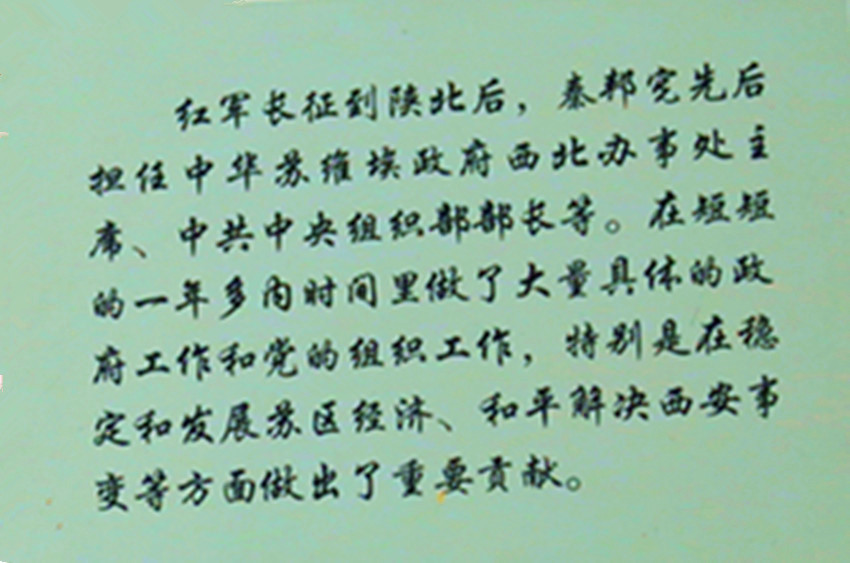 红军长征到陕北后，秦邦宪先后
担任中华苏维埃政府西北办事处主
席、中共中央组织部部长等。在短短
的一年多内时间里做了大量具体的政
府工作和党的组织工作，特别是在稳
定和发展苏区经济、和平解决西安事
变等方面做出了重要贡献。